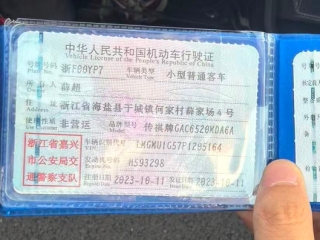 中华人民共和国机动车行驶证
Vehicle License of the People's Republic of China
号牌号码 浙F00YP7 车辆类型 小型普通客车
所有人 薛超
住址 浙江省海盐县于城镇何家村薛家场4号
使用性质 非营运 品牌型号 传祺牌GAC6520MDA6A
浙江省嘉兴
市公安局交
通警察支队
车辆识别代号 LMGMU1G57P1205164
发动机号码 H593298
注册日期 2023-10-11 发证日期 2023-10-11